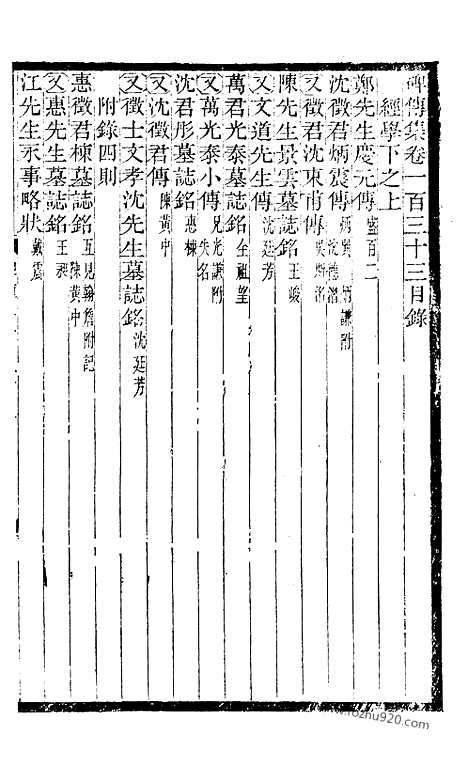 碑傳集卷一百三十三目錄
經學下之上
鄭先生慶元傳 盛百二
沈徵君炳震傳 沈德潛 炳巽 炳謙附
又徵君沈東甫傳
陳先生景雲墓誌銘 王峻
又文道先生傳 沈廷芳
萬君光泰墓誌銘 全祖望
又萬光泰小傳 失名 兄光謙附
沈君彤墓誌銘 惠棟
又沈徵君傳 陳黃中
又徵士文孝沈先生墓誌銘 沈廷芳
附錄四則
惠徵君棟墓誌銘 陳黃中 互見翰詹附記
又惠先生墓誌銘 王昶
江先生永事略狀 戴震
www.fozhu920.com